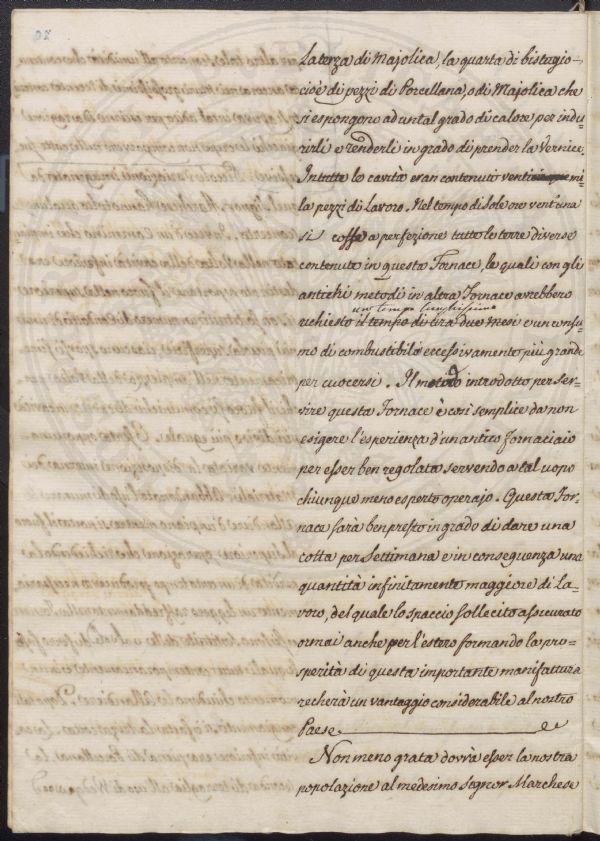 La terza di Majolica, la quarta di bistugio -
cioè di pezzi di Porcellana, o di Majolica che
si espongono ad un tal grado di calore per indu=
rirli e renderli in grado di prender la Vernice.
In tutte le cavità eran contenuti venticinque mi=
la pezzi di Lavoro. Nel tempo di sole ore vent'una
si cosse a perfezione tutte le terre diverse
contenute in questa Fornace, le quali con gli
antichi metodi in altra Fornace avrebbero
un tempo lunghissimo
richiesto il tempo di circa due Mesi e un consu=
mo di combustibili eccessivamente più grande
per cuocersi. Il metodo introdotto per ser=
vire questa Fornace è così semplice da non
esigere l'esperienza d'un antico fornaciaio
per esser ben regolata servendo a tal uopo
chiunque meno esperto operajo. Questa For=
nace sarà ben presto in grado di dare una
cotta per Settimana e in conseguenza una
quantità infinitamente maggiore di La=
voro, del quale lo spaccio sollecito assicurato
ormai anche per l'estero formando la pro=
sperità di questa importante manifattura
recherà un vantaggio considerabile al nostro
Paese
Non meno grata dovrà esser la nostra
popolazione al medesimo Signor Marchese